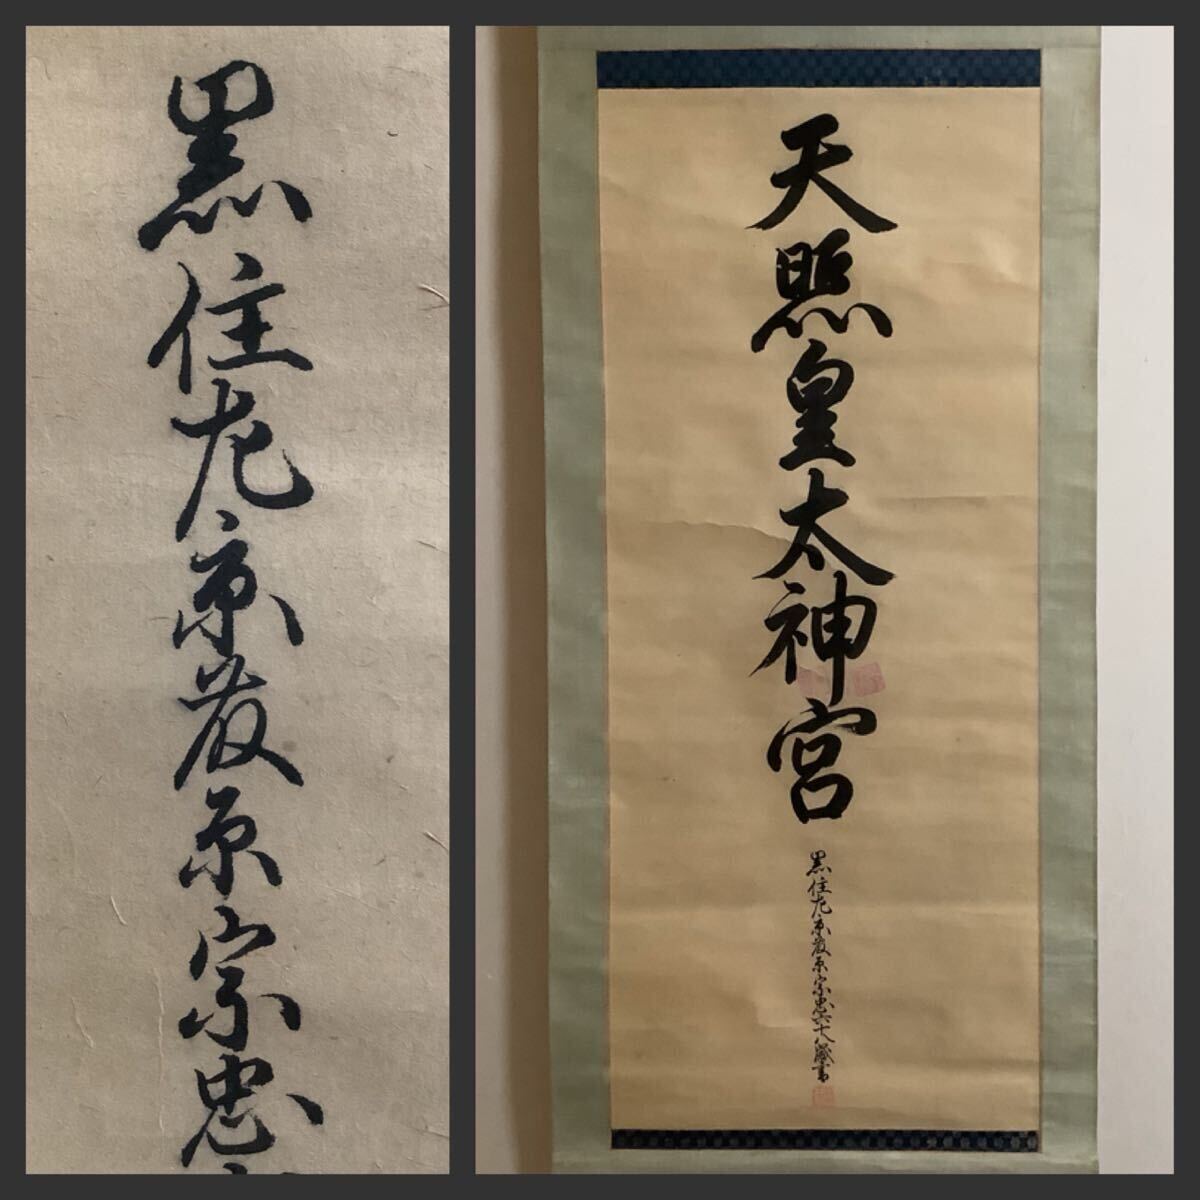 黒住左京藤原宗忠
天照皇太神宮
黒住左京藤原宗忠六十八歳書